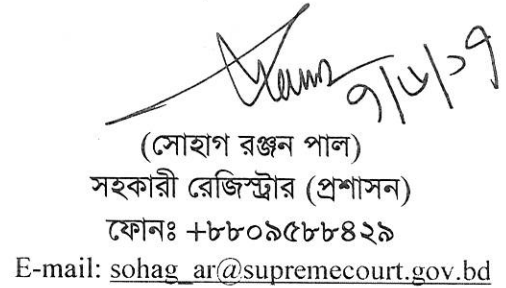 ৭/৬/১৭
(সোহাগ রঞ্জন পাল)
সহকারী রেজিস্ট্রার (প্রশাসন)
ফোনঃ +৮৮০৯৫৮৮৪২৯
E-mail: sohag_ar@supremecourt.gov.bd